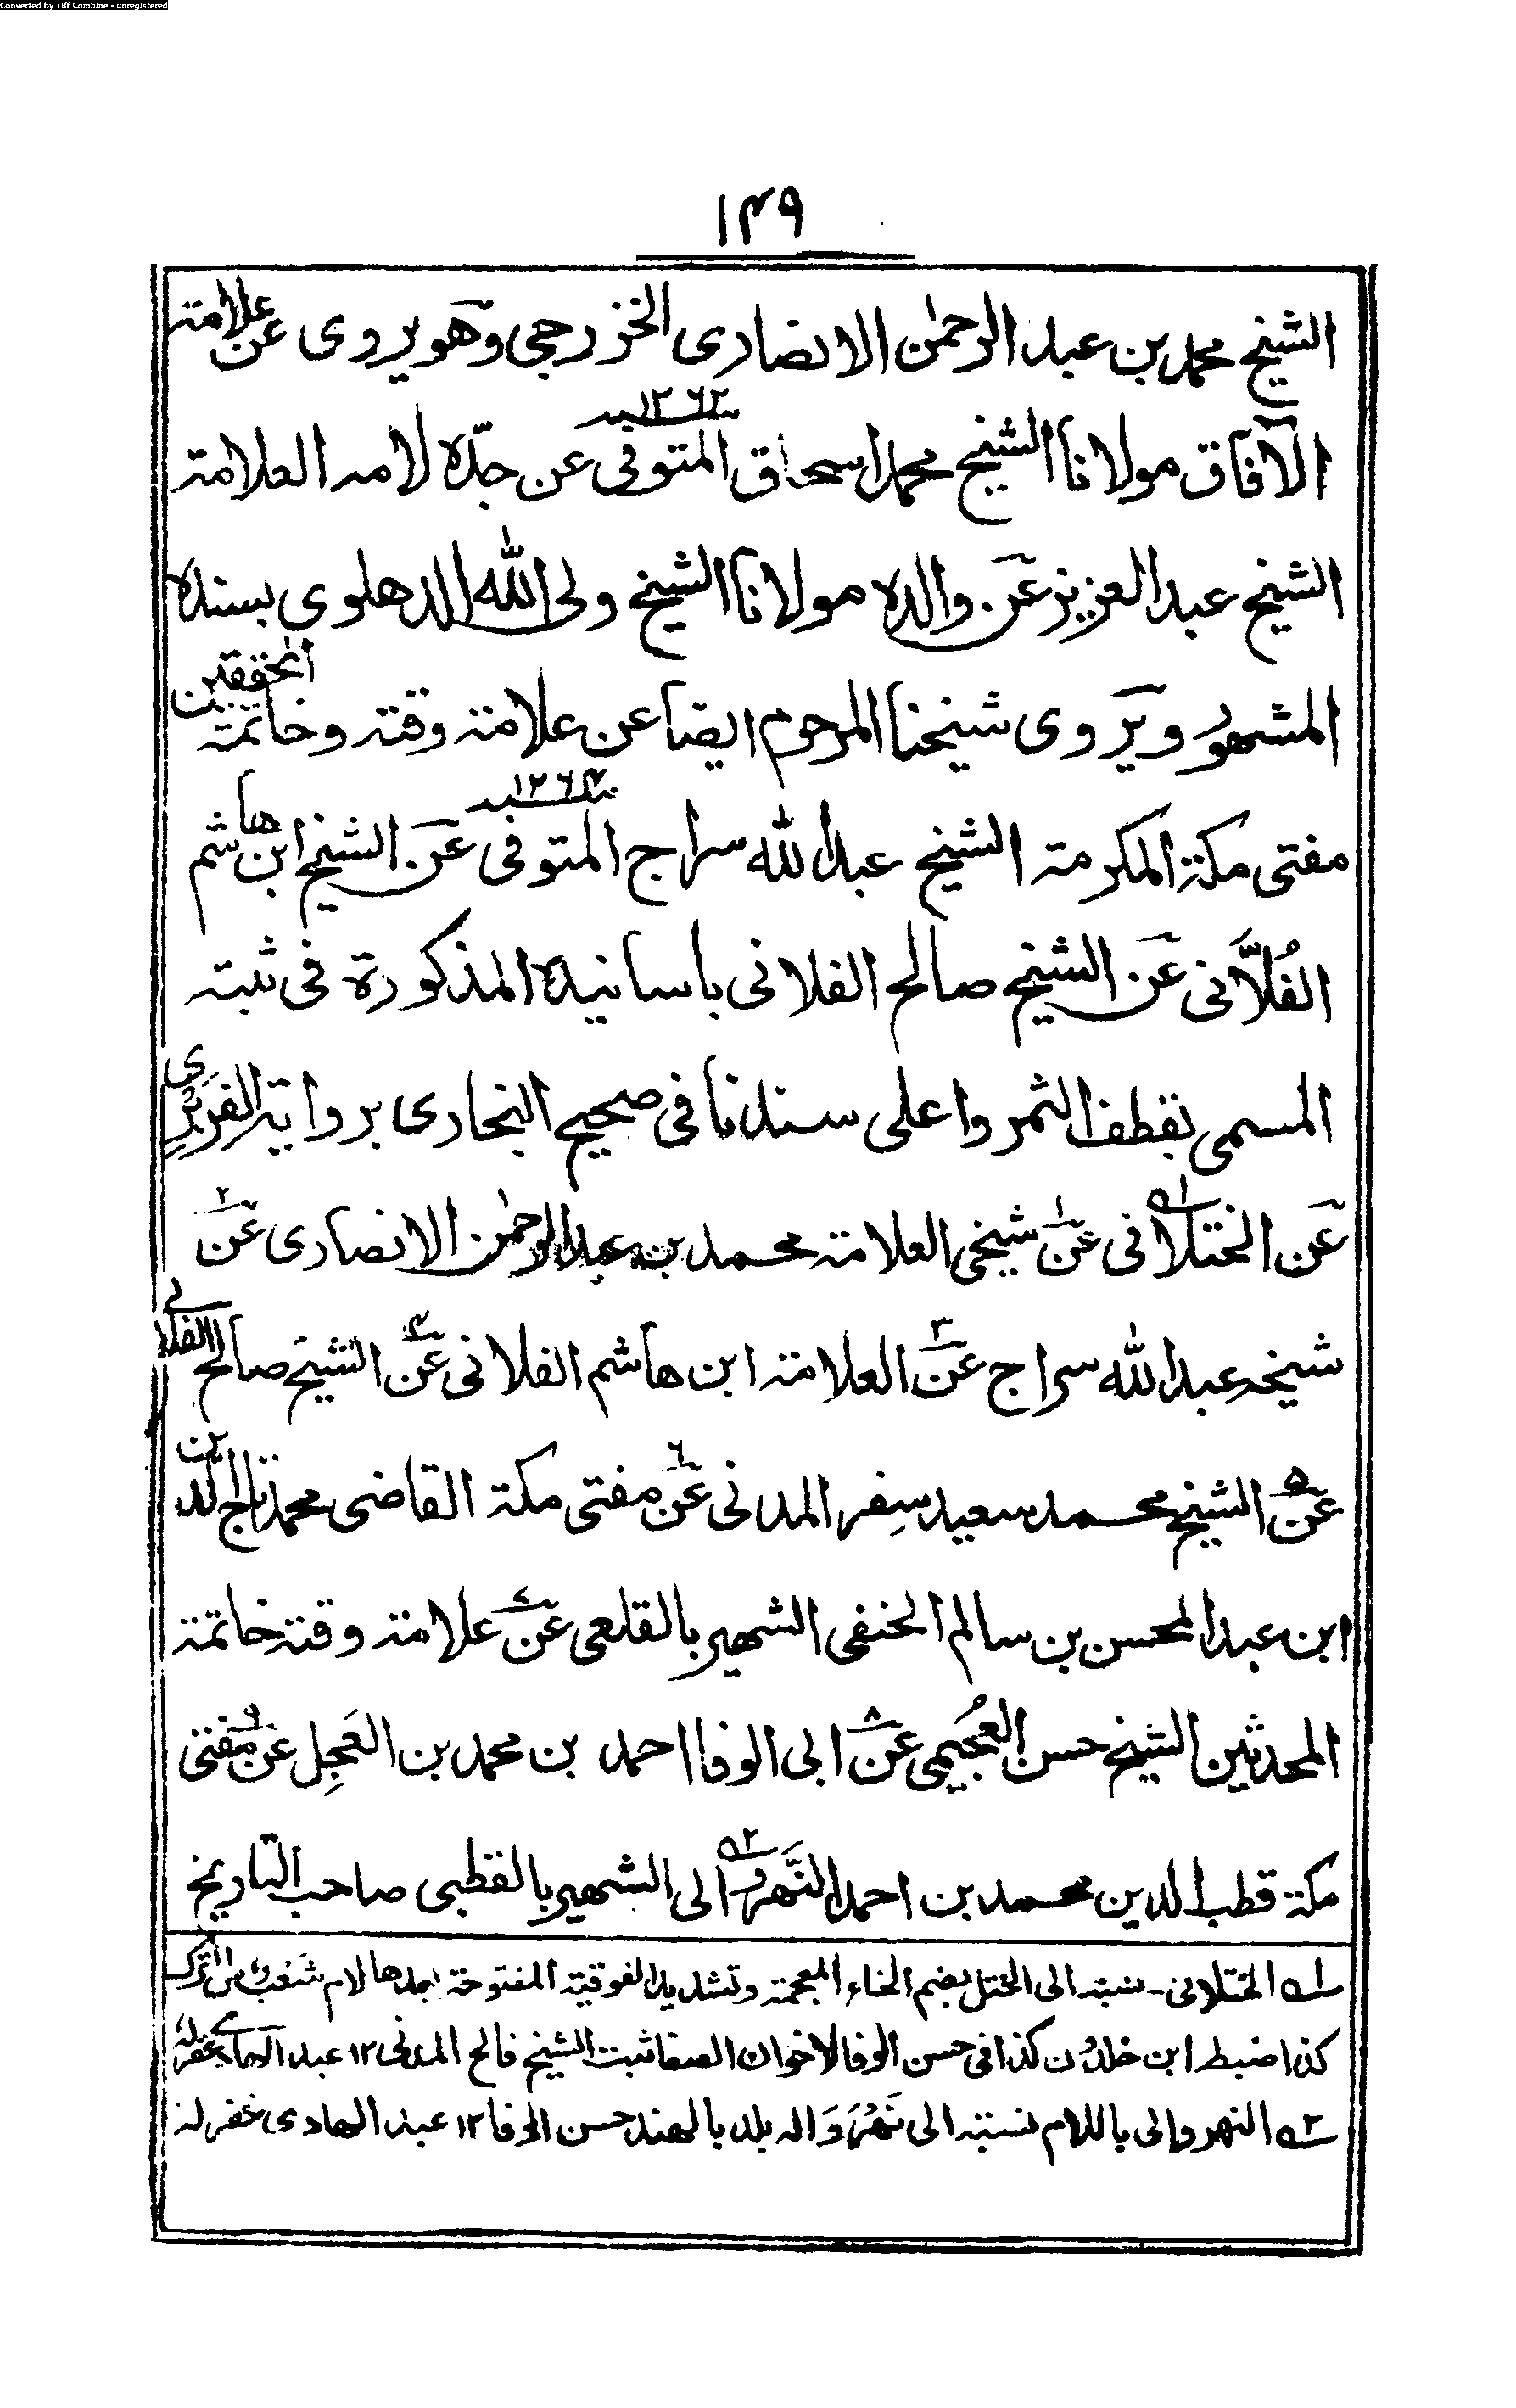 Converted by Tiff Combine - unregistered
۱۴۹
الشيخ محمد بن عبد الرحمٰن الانصارى الخزرجى وهو يروى عن علامة
الآفاق مولانا الشيخ محمد اسحاق المتوفى سنه ۱۲۶۲ عن جدّه لامه العلامة
الشيخ عبد العزيز عن والده مولانا الشيخ ولى الله الدهلوى بسنده
المشهور ويروى شيخنا المرحوم ايضا عن علامة وقته وخاتمة المحققين
مفتى مكة المكرمة الشيخ عبد الله سراج المتوفى سنه ۱۲۶۴ عن الشيخ ابن هاشم
الفُلاَّنى عن الشيخ صالح الفلانى باسانيده المذكورة فى ثبته
المسمى بقطف الثمر واعلى سندنا فى صحيح البخارى برواية الفربرى
عن الختلانى ۱ عن ۱ شيخى العلامة محمد بن عبد الرحمٰن الانصارى عن ۲
شيخه عبد الله سراج عن ۳ العلامة ابن هاشم الفلانى عن ۴ الشيخ صالح الفلانى
عن ۵ الشيخ محمد سعيد سِفر المدنى عن ۶ مفتى مكة القاضى محمد تاج الدين
ابن عبد المحسن بن سالم الحنفى الشهير بالقلعى عن ۷ علامة وقته خاتمة
المحدثين الشيخ حسن العُجَيمى عن ۸ ابى الوفا احمد بن محمد بن العَجِل عن ۹ مفتى
مكة قطب الدين محمد بن احمد النَّهروالى ۲ الشهير بالقطبى صاحب التاريخ
۱ الختلانى - نسبة الى الختل بضم الخاء المعجمة وتشديد الفوقية المفتوحة بعدها لام شعب من الترك
كذا ضبط ابن خلدُن كذا فى حسن الوفا لاخوان الصفا ثبت الشيخ فالح المدنى ۱۲ عبد الهادى غفر له
۲ النهروالى باللام نسبة الى نَهْرَوَاله بلد بالهند حسن الوفا ۱۲ عبد الهادى غفر له